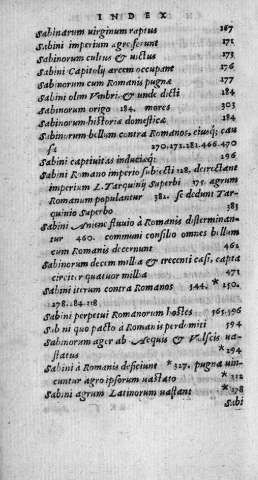 INDEX
Sabinarum uirginum raptus 167
Sabini imperium ægre ferunt 171
Sabinorum cultus & uictus 173
Sabini Capitolij arcem occupant 176
Sabinorum cum Romanis pugna 177
Sabini olim Vmbri & unde dicti 184
Sabinorum origo 184. mores 303
Sabinorum historia domestica 184
Sabinorum bellum contra Romanos, eiusq; cau
sæ 270.272.281.466.470
Sabini captiuitas induciæq; 296
Sabini Romano imperio subiecti 128, detrectant
imperium L. Tarquinij Superbi 375. agrum
Romanum populantur 382. se dedunt Tar
quinio Superbo 383
Sabini Aniene fluuio à Romanis disterminan-
tur 460. communi consilio omnes bellum
cum Romanis decernunt 462
Sabinorum decem millia & trecenti cæsi, capta
circiter quatuor millia 471
Sabini iterum contra Romanos 544. * 250.
278.284.118
Sabini perpetui Romanorum hostes 565.596
Sabini quo pacto à Romanis perdomiti 594
Sabinorum ager ab Aequis & Volscis ua-
status * 294
Sabini à Romanis deficiunt * 327. pugna uin-
cuntur agro ipsorum uastato * 212
Sabini agrum Latinorum uastant * 278
Sabi